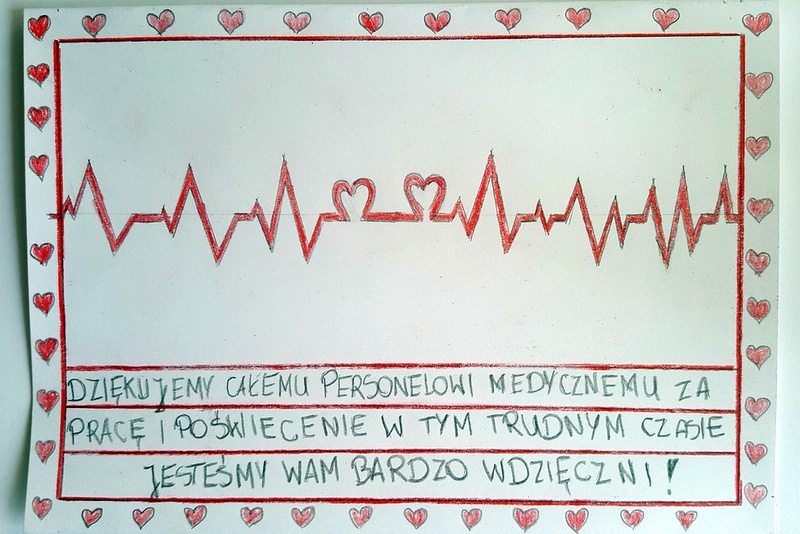 DZIĘKUJEMY CAŁEMU PERSONELOWI MEDYCZNEMU ZA
PRACĘ I POŚWIECENIE W TYM TRUDNYM CZASIE
JESTEŚMY WAM BARDZO WDZIĘCZNI!